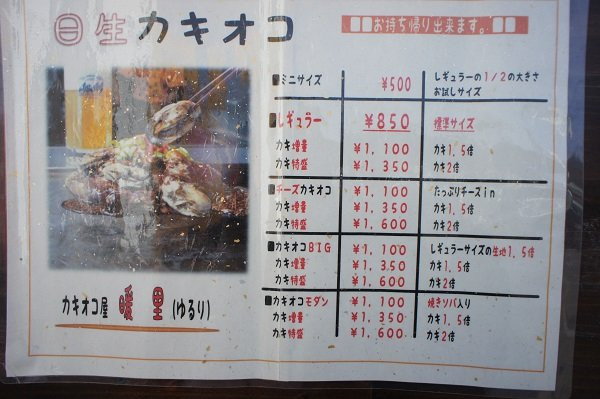 日生カキオコ
お持ち帰り出来ます。
■ミニサイズ ¥500 レギュラーの1/2の大きさ
お試しサイズ
■レギュラー ¥850 標準サイズ
カキ増量 ¥1,100 カキ1.5倍
カキ特盛 ¥1,350 カキ2倍
■チーズカキオコ ¥1,100 たっぷりチーズin
カキ増量 ¥1,350 カキ1.5倍
カキ特盛 ¥1,600 カキ2倍
■カキオコBIG ¥1,100 レギュラーサイズの生地1.5倍
カキ増量 ¥1,350 カキ1.5倍
カキ特盛 ¥1,600 カキ2倍
■カキオコモダン ¥1,100 焼きソバ入り
カキ増量 ¥1,350 カキ1.5倍
カキ特盛 ¥1,600 カキ2倍
カキオコ屋 暖里(ゆるり)